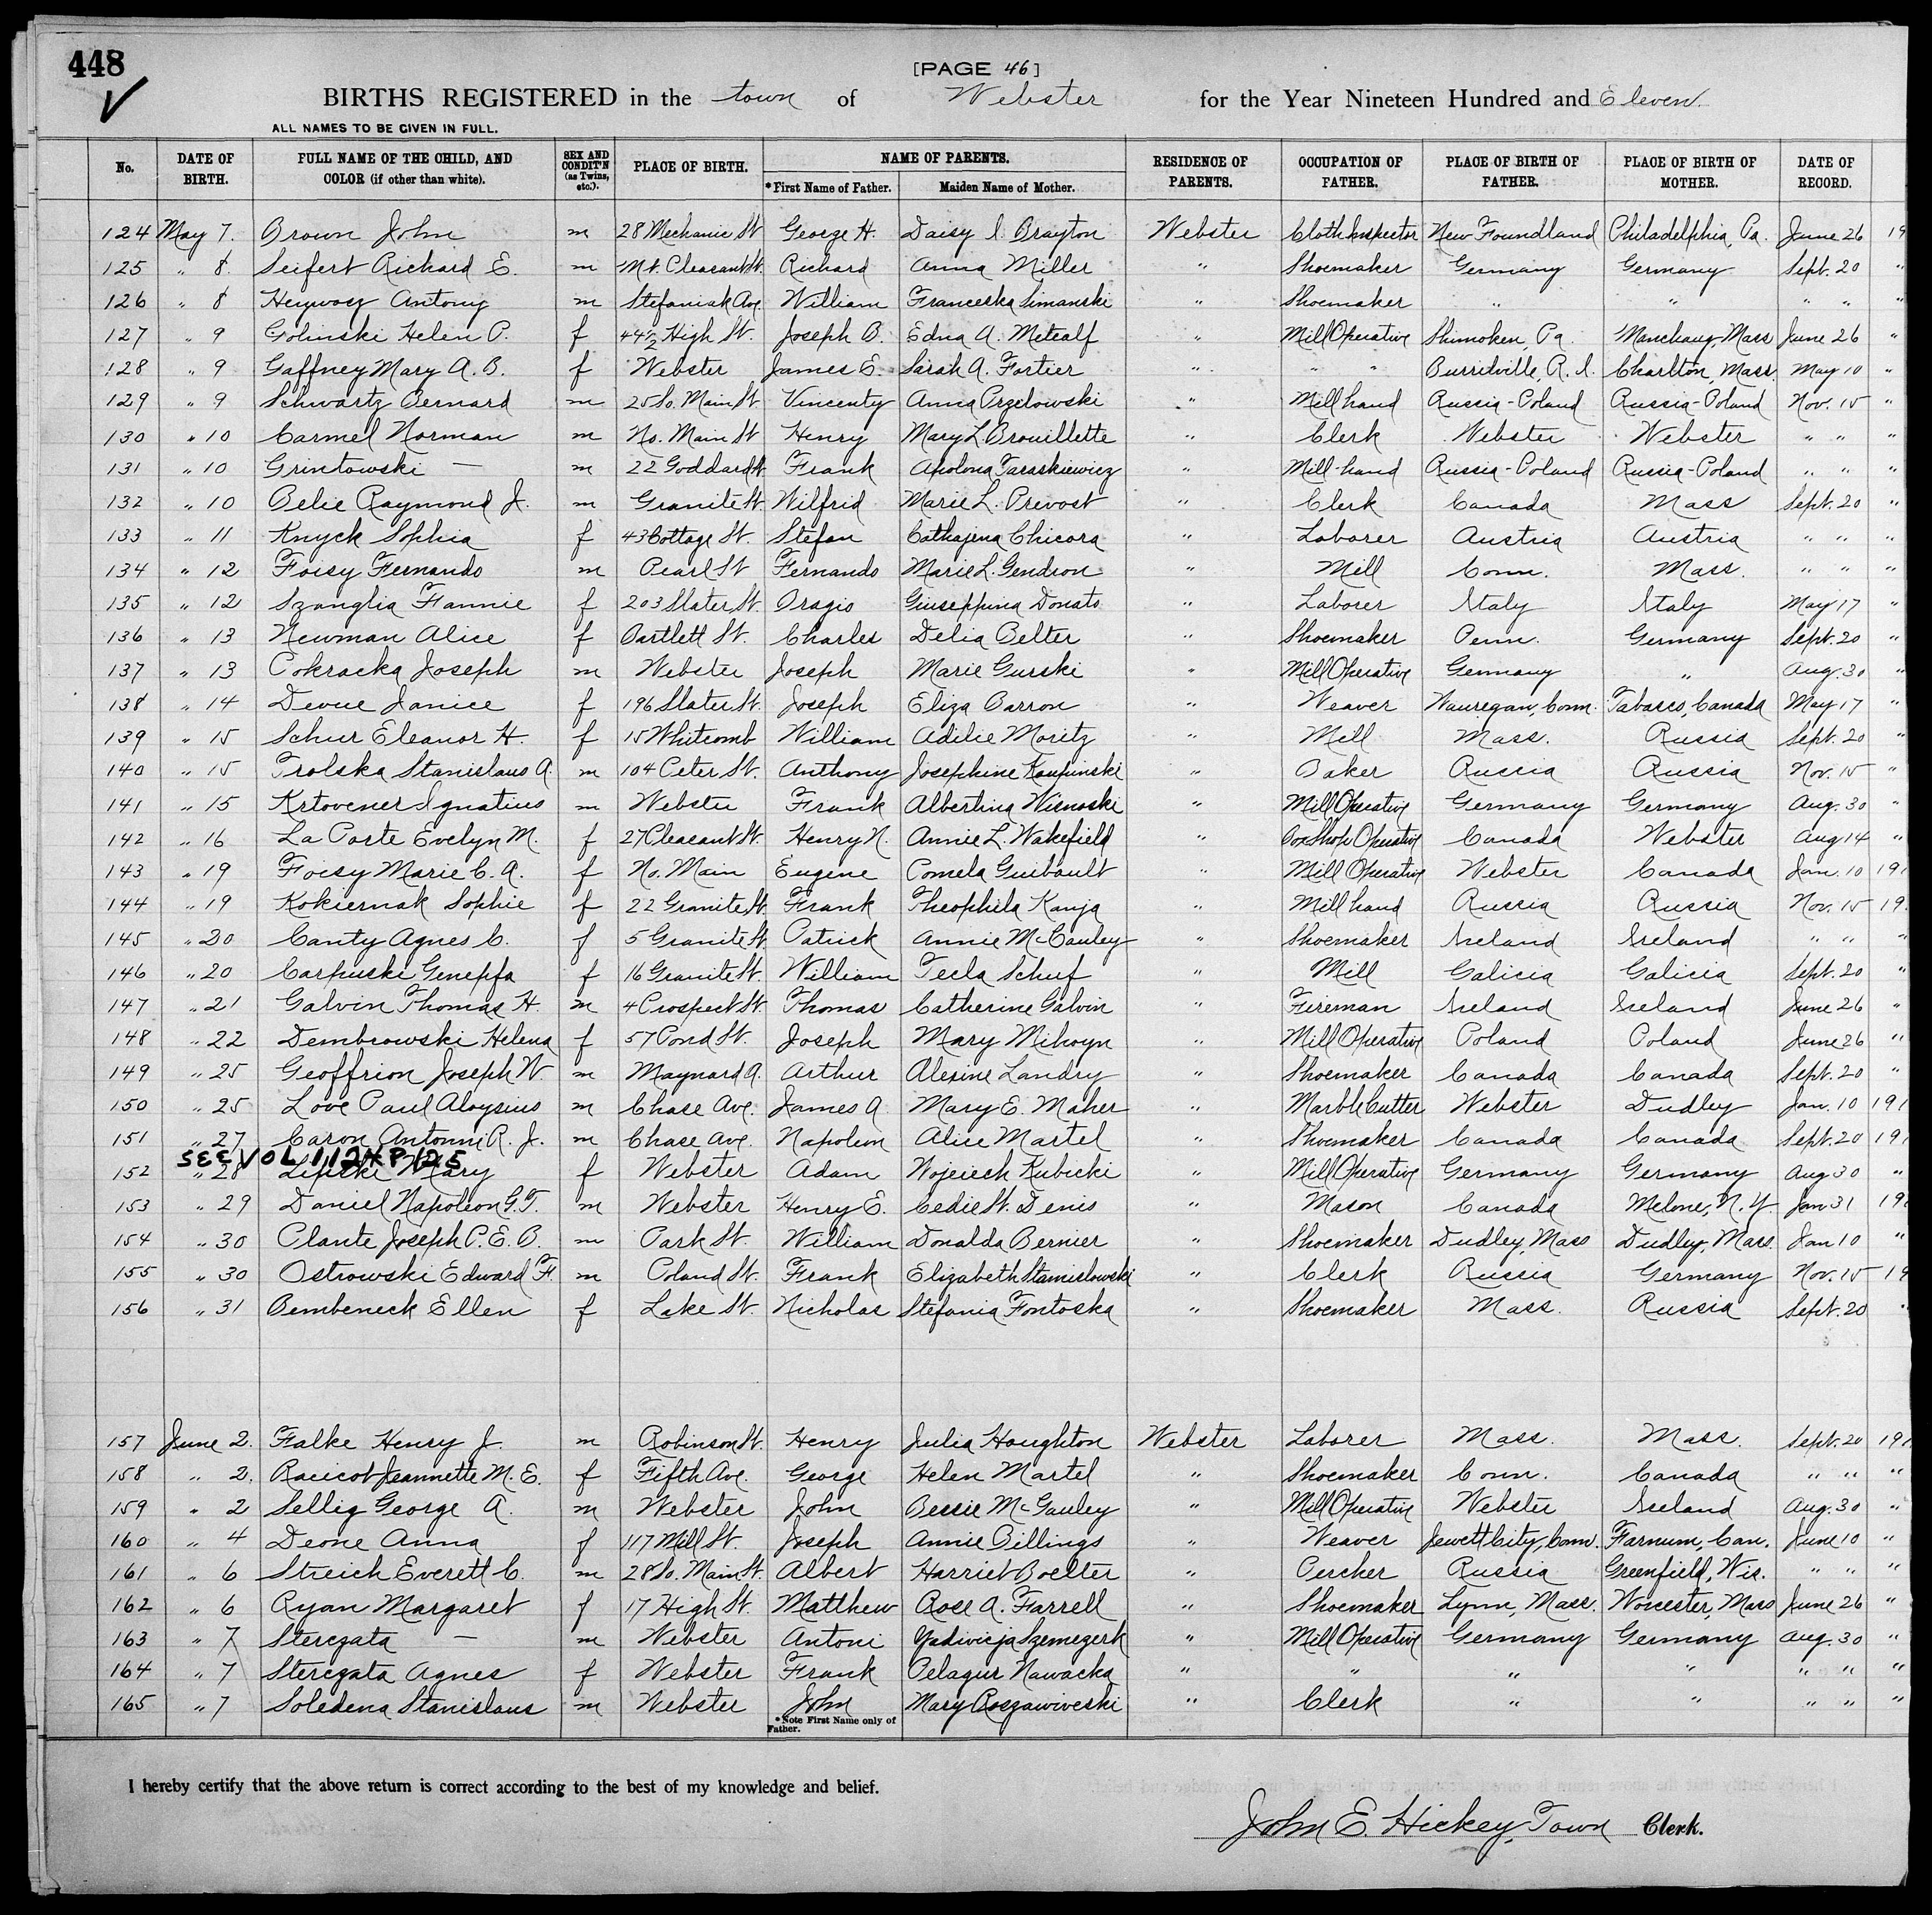 448
[PAGE 46]
BIRTHS REGISTERED in the town of Webster for the Year Nineteen Hundred and Eleven.
ALL NAMES TO BE GIVEN IN FULL.
No. DATE OF BIRTH. FULL NAME OF THE CHILD, AND COLOR (if other than white). SEX AND CONDIT'N (as Twins, etc.). PLACE OF BIRTH. NAME OF PARENTS. *First Name of Father. Maiden Name of Mother. RESIDENCE OF PARENTS. OCCUPATION OF FATHER. PLACE OF BIRTH OF FATHER. PLACE OF BIRTH OF MOTHER. DATE OF RECORD.
124 May 7. Brown John m 28 Mechanic St George H. Daisy I. Brayton Webster Cloth Inspector New Foundland Philadelphia, Pa. June 26 19
125 " 8. Seifert Richard E. m Mt. Pleasant St. Richard Anna Miller " Shoemaker Germany Germany Sept. 20 "
126 " 8 Heywosz Antony m Stefaniak Ave. William Franceska Simanski " Shoemaker " " " " "
127 " 9 Golinski Helen P. f 44½ High St. Joseph B. Edna A. Metcalf " Mill Operative Shimoken, Pa. Manchaug, Mass June 26 "
128 " 9 Gaffney Mary A. B. f Webster James E. Sarah A. Fortier " " " Burrilville, R.I. Charlton, Mass. May 10 "
129 " 9 Schwartz Bernard m 25 So. Main St Vincenty Anna Przelowski " Mill hand Russia-Poland Russia-Poland Nov. 15 "
130 " 10 Carmel Norman m No. Main St Henry Mary L. Brouillette " Clerk Webster Webster " " "
131 " 10 Grintowski — m 22 Goddard St Frank Apolona Taraskiewicz " Mill-hand Russia-Poland Russia-Poland " " "
132 " 10 Belie Raymond J. m Granite St. Wilfrid Marie L. Prevost " Clerk Canada Mass Sept. 20 "
133 " 11 Knyck Sophia f 43 Cottage St. Stefan Cathajena Chicora " Laborer Austria Austria " " "
134 " 12 Foisy Fernando m Pearl St Fernando Marie L. Gendron " Mill Conn. Mass. " " "
135 " 12 Szanglia Fannie f 203 Slater St. Oragio Giuseppina Donato " Laborer Italy Italy May 17 "
136 " 13 Newman Alice f Bartlett St. Charles Delia Belter " Shoemaker Penn. Germany Sept. 20 "
137 " 13 Pokracka Joseph m Webster Joseph Marie Gurski " Mill Operative Germany " Aug. 30 "
138 " 14 Devue Janice f 196 Slater St. Joseph Eliza Barron " Weaver Wauregan, Conn. Tabasco, Canada May 17 "
139 " 15 Schur Eleanor H. f 15 Whitcomb William Adilie Moritz " Mill Mass. Russia Sept. 20 "
140 " 15 Trolska Stanislaus A. m 104 Peter St. Anthony Josephine Koupinski " Baker Russia Russia Nov. 15 "
141 " 15 Krtovener Ignatius m Webster Frank Albertina Wisnoski " Mill Operative Germany Germany Aug. 30 "
142 " 16 La Porte Evelyn M. f 27 Pleasant St. Henry N. Annie L. Wakefield " Box Shop Operative Canada Webster Aug 14 "
143 " 19 Foisy Marie C. A. f No. Main Eugene Pomela Guibault " Mill Operative Webster Canada Jan. 10 191
144 " 19 Kokiernak Sophie f 22 Granite St. Frank Theophila Kanja " Mill hand Russia Russia Nov. 15 19
145 " 20 Canty Agnes C. f 5 Granite St. Patrick Annie McCauley " Shoemaker Ireland Ireland " " "
146 " 20 Carpuski Genepfa f 16 Granite St. William Tecla Schuf " Mill Galicia Galicia Sept. 20 "
147 " 21 Galvin Thomas H. m 4 Prospect St. Thomas Catherine Galvin " Fireman Ireland Ireland June 26 "
148 " 22 Dembrowski Helena f 57 Pond St. Joseph Mary Mihoyn " Mill Operative Poland Poland June 26 "
149 " 25 Geoffrion Joseph W. m Maynard A. Arthur Alexine Landry " Shoemaker Canada Canada Sept. 20 "
150 " 25 Love Paul Aloysius m Chase Ave. James A. Mary E. Maher " Marble Cutter Webster Dudley Jan. 10 191
151 " 27 Caron Antonni R. J. m Chase Ave. Napoleon Alice Martel " Shoemaker Canada Canada Sept. 20 191
SEE VOL 112X P 125
152 " 28 Lipicki Mary f Webster Adam Wojeiech Kubicki " Mill Operative Germany Germany Aug 30 "
153 " 29 Daniel Napoleon G. T. m Webster Henry E. Cedie St. Denis " Mason Canada Melone, N.Y. Jan 31 19
154 " 30 Plante Joseph P. E. B. m Park St. William Donalda Bernier " Shoemaker Dudley, Mass Dudley, Mass. Jan 10 "
155 " 30 Ostrowski Edward F. m Poland St. Frank Elizabeth Stanislowski " Clerk Russia Germany Nov. 15 19
156 " 31 Bembeneck Ellen f Lake St. Nicholas Stefania Fontoska " Shoemaker Mass. Russia Sept. 20 "
157 June 2. Falke Henry J. m Robinson St. Henry Julia Houghton Webster Laborer Mass. Mass. Sept. 20 191
158 " 2. Racicot Jeannette M. E. f Fifth Ave. George Helen Martel " Shoemaker Conn. Canada " " "
159 " 2 Sellig George A. m Webster John Bessie McGauley " Mill Operative Webster Ireland Aug. 30 "
160 " 4 Deone Anna f 117 Mill St. Joseph Annie Billings " Weaver Jewett City, Conn. Farnum, Can. June 10 "
161 " 6 Streich Everett C. m 28 So. Main St. Albert Harriet Boelter " Percher Russia Greenfield, Wis. " " "
162 " 6 Ryan Margaret f 17 High St. Matthew Rose A. Farrell " Shoemaker Lynn, Mass. Worcester, Mass June 26 "
163 " 7 Sterczata — m Webster Antoni Yadwicja Szemezerk " Mill Operative Germany Germany Aug. 30 "
164 " 7 Sterczata Agnes f Webster Frank Pelagur Nawacka " " " " " " "
165 " 7 Soledena Stanislaus m Webster John Mary Roszawiveski " Clerk " " " " "
*Note First Name only of Father.
I hereby certify that the above return is correct according to the best of my knowledge and belief.
John E. Hickey, Town Clerk.